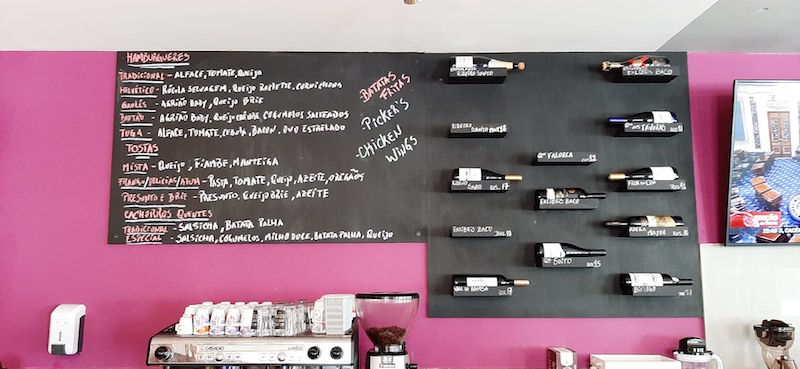 HAMBURGUERES
TRADICIONAL - ALFACE, TOMATE, QUEIJO
HELVÉTICO - RÚCOLA SELVAGEM, QUEIJO RACLETTE, CORNICHONS
GAULÊS - AGRIÃO BABY, QUEIJO BRIE
BRETÃO - AGRIÃO BABY, QUEIJO CHÈVRE COGUMELOS SALTEADOS
TUGA - ALFACE, TOMATE, CEBOLA, BACON, OVO ESTRELADO
TOSTAS
MISTA - QUEIJO, FIAMBRE, MANTEIGA
FRANGO/DELÍCIAS/ATUM - PASTA, TOMATE, QUEIJO, AZEITE, OREGÃOS
PRESUNTO E BRIE - PRESUNTO, QUEIJO BRIE, AZEITE
CACHORROS QUENTES
TRADICIONAL - SALSICHA, BATATA PALHA
ESPECIAL - SALSICHA, COGUMELOS, MILHO DOCE, BATATA PALHA, QUEIJO
-BATATAS FRITAS
-PICKER'S
-CHICKEN WINGS
RIBEIRO SANTO
EXLIBRIS BACO
RIBEIRO SANTO
Qta FALORCA 12
SANTO 17
EXLIBRIS BACO
FLOR DO CÔA
EXLIBRIS BACO
ADEGA
SOITO DOC 15
DOC 17